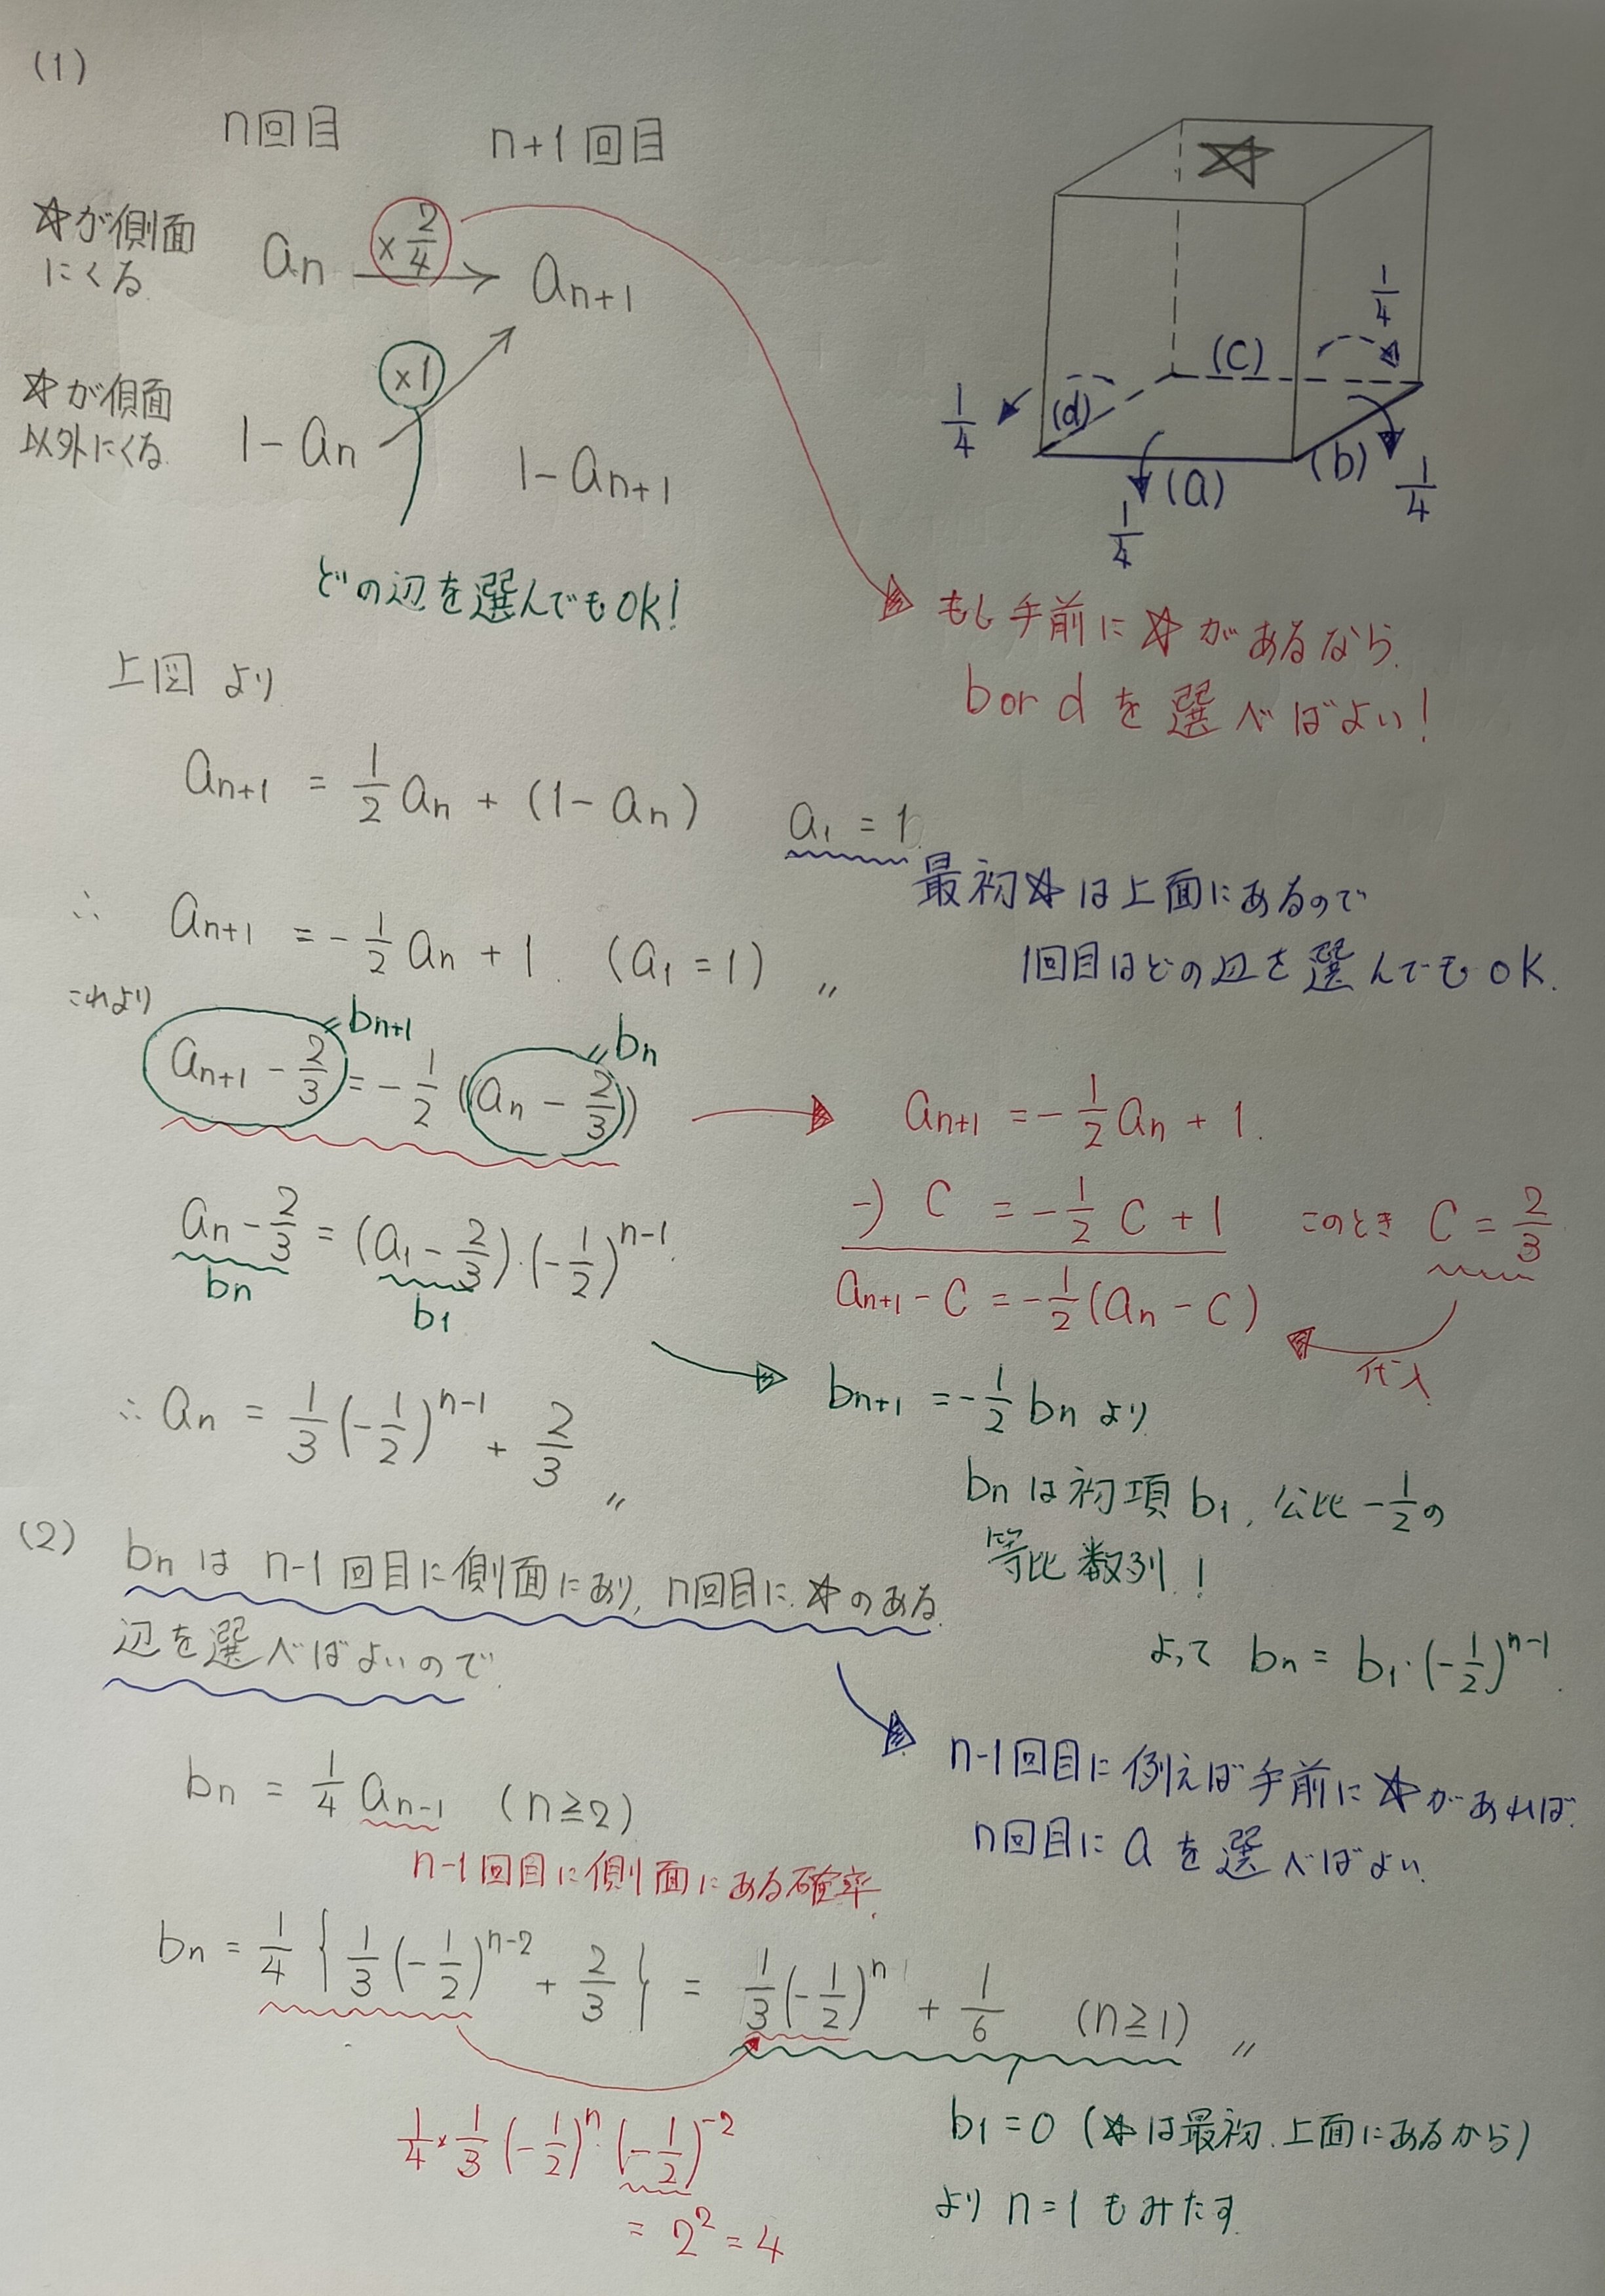 (1)
n回目 n+1回目
☆が側面
にくる
an ×2/4 → an+1
☆が側面
以外にくる
1-an ×1 1-an+1
どの辺を選んでもOK!
☆
1/4
(c)
1/4 (d)
(a) (b) 1/4
1/4
もし手前に☆があるなら
b or d を選べばよい!
上図より
an+1 = 1/2 an + (1-an)
a1 = 1
最初☆は上面にあるので
1回目はどの辺を選んでもOK.
∴ an+1 = -1/2 an + 1. (a1 = 1) 〃
これより
an+1 - 2/3 = -1/2 (an - 2/3)
= bn+1 = bn
an+1 = -1/2 an + 1.
-) C = -1/2 C + 1 このとき C = 2/3
an+1 - C = -1/2 (an - C)
代入
an - 2/3 = (a1 - 2/3)・(-1/2)^n-1
bn b1
bn+1 = -1/2 bn より
bn は初項 b1, 公比 -1/2 の
等比数列!
よって bn = b1・(-1/2)^n-1
∴ an = 1/3 (-1/2)^n-1 + 2/3 〃
(2) bn は n-1回目に側面にあり, n回目に☆のある
辺を選べばよいので
n-1回目に例えば手前に☆があれば
n回目に a を選べばよい
bn = 1/4 an-1 (n≧2)
n-1回目に側面にある確率
bn = 1/4 { 1/3 (-1/2)^n-2 + 2/3 } = 1/3 (-1/2)^n + 1/6 (n≧1) 〃
1/4 × 1/3 (-1/2)^n・(-1/2)^-2
= 2^2 = 4
b1 = 0 (☆は最初、上面にあるから)
より n=1 もみたす